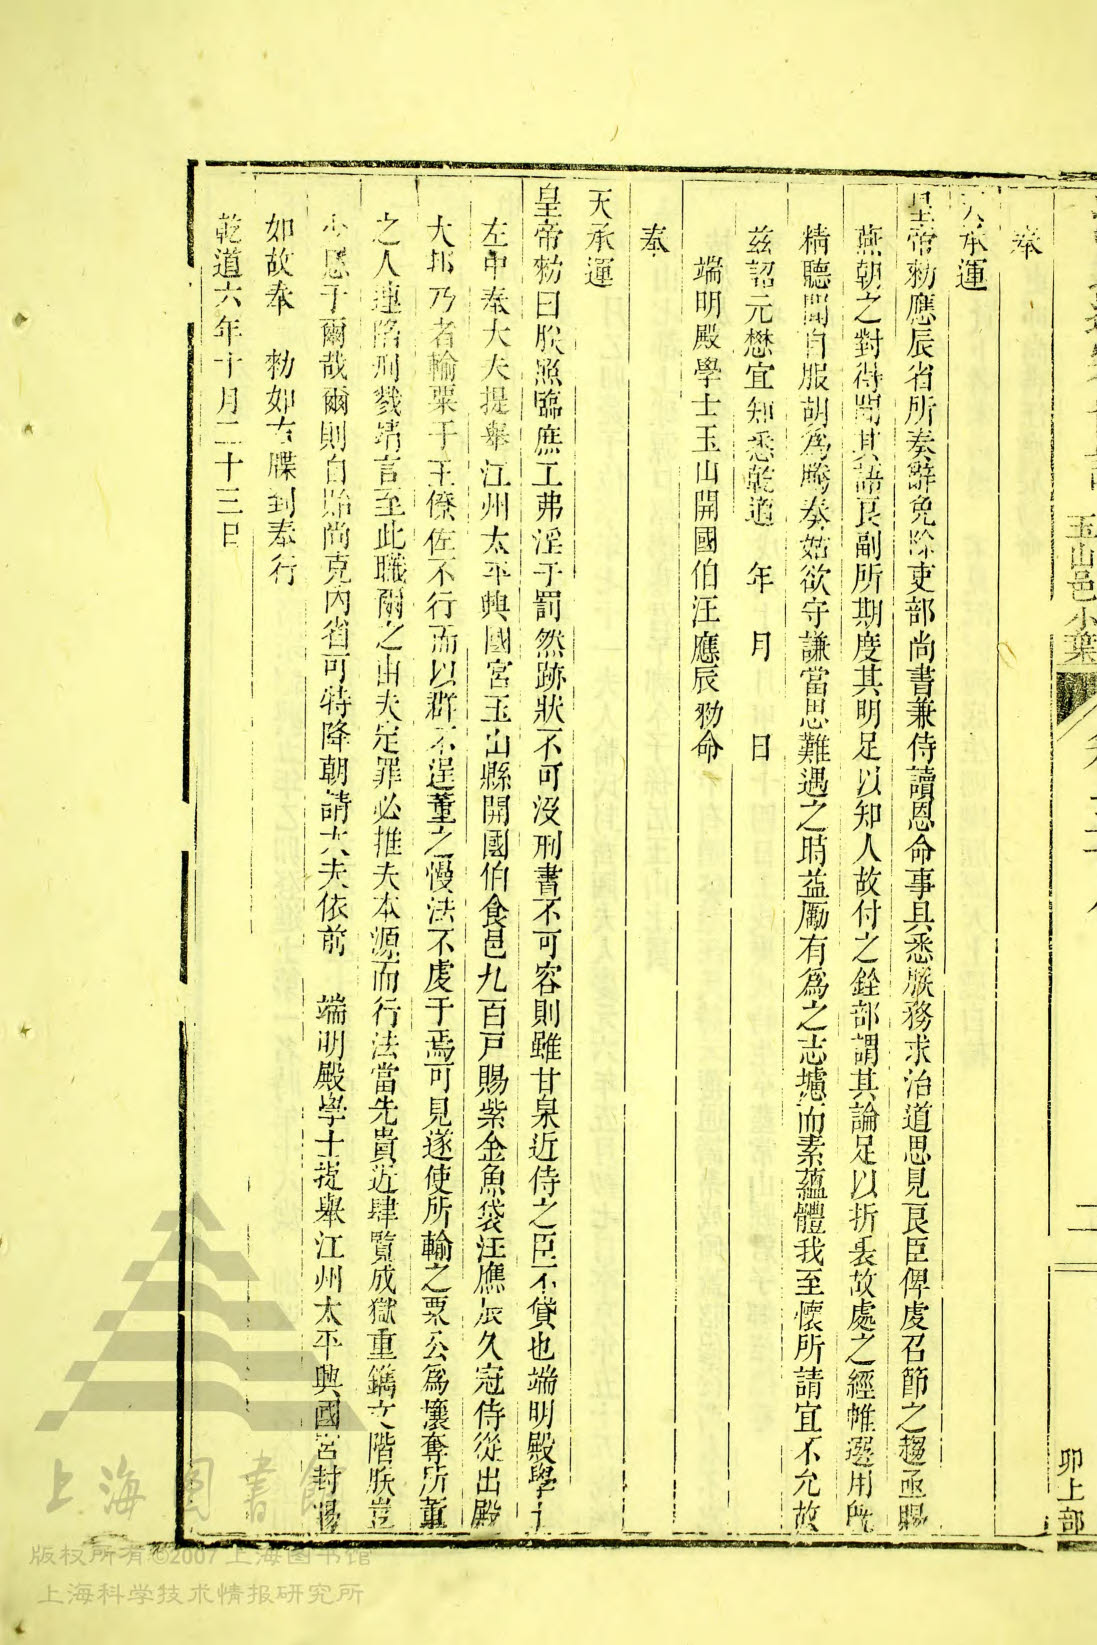 玉山邑小葉
二
卯上部
奉
天承運
皇帝勑應辰省所奏辭免除吏部尚書兼侍讀恩命事具悉朕務求治道思見良臣俾虔召節之趨亟賜
燕朝之對得聞其語良副所期度其明足以知人故付之銓部謂其論足以折衷故處之經帷選用既
精聽聞自服胡為騰奏姑欲守謙當思難遇之時益勵有為之志攄而素蘊體我至懷所請宜不允故
茲詔元懋宜知悉乾道 年 月 日
端明殿學士玉山開國伯汪應辰勑命
奉
天承運
皇帝勑曰朕照臨庶工弗淫于罰然跡狀不可沒刑書不可容則雖甘泉近侍之臣不貸也端明殿學士
左中奉大夫提舉江州太平興國宮玉山縣開國伯食邑九百戶賜紫金魚袋汪應辰久冠侍從出殿
大邦乃者輸粟于王僚佐不行而以群不逞董之慢法不虔于焉可見遂使所輸之粟公為攘奪所董
之人連陷刑戮靖言至此職爾之由夫定罪必推夫本源而行法當先貴近肆覽成獄重鐫文階朕豈
少恩于爾哉爾則自貽尚克內省可特降朝請大夫依前 端明殿學士提舉江州太平興國宮封賜
如故奉 勑如右牒到奉行
乾道六年十月二十三日
上海圖書館
版权所有©2007 上海图书馆
上海科学技术情报研究所